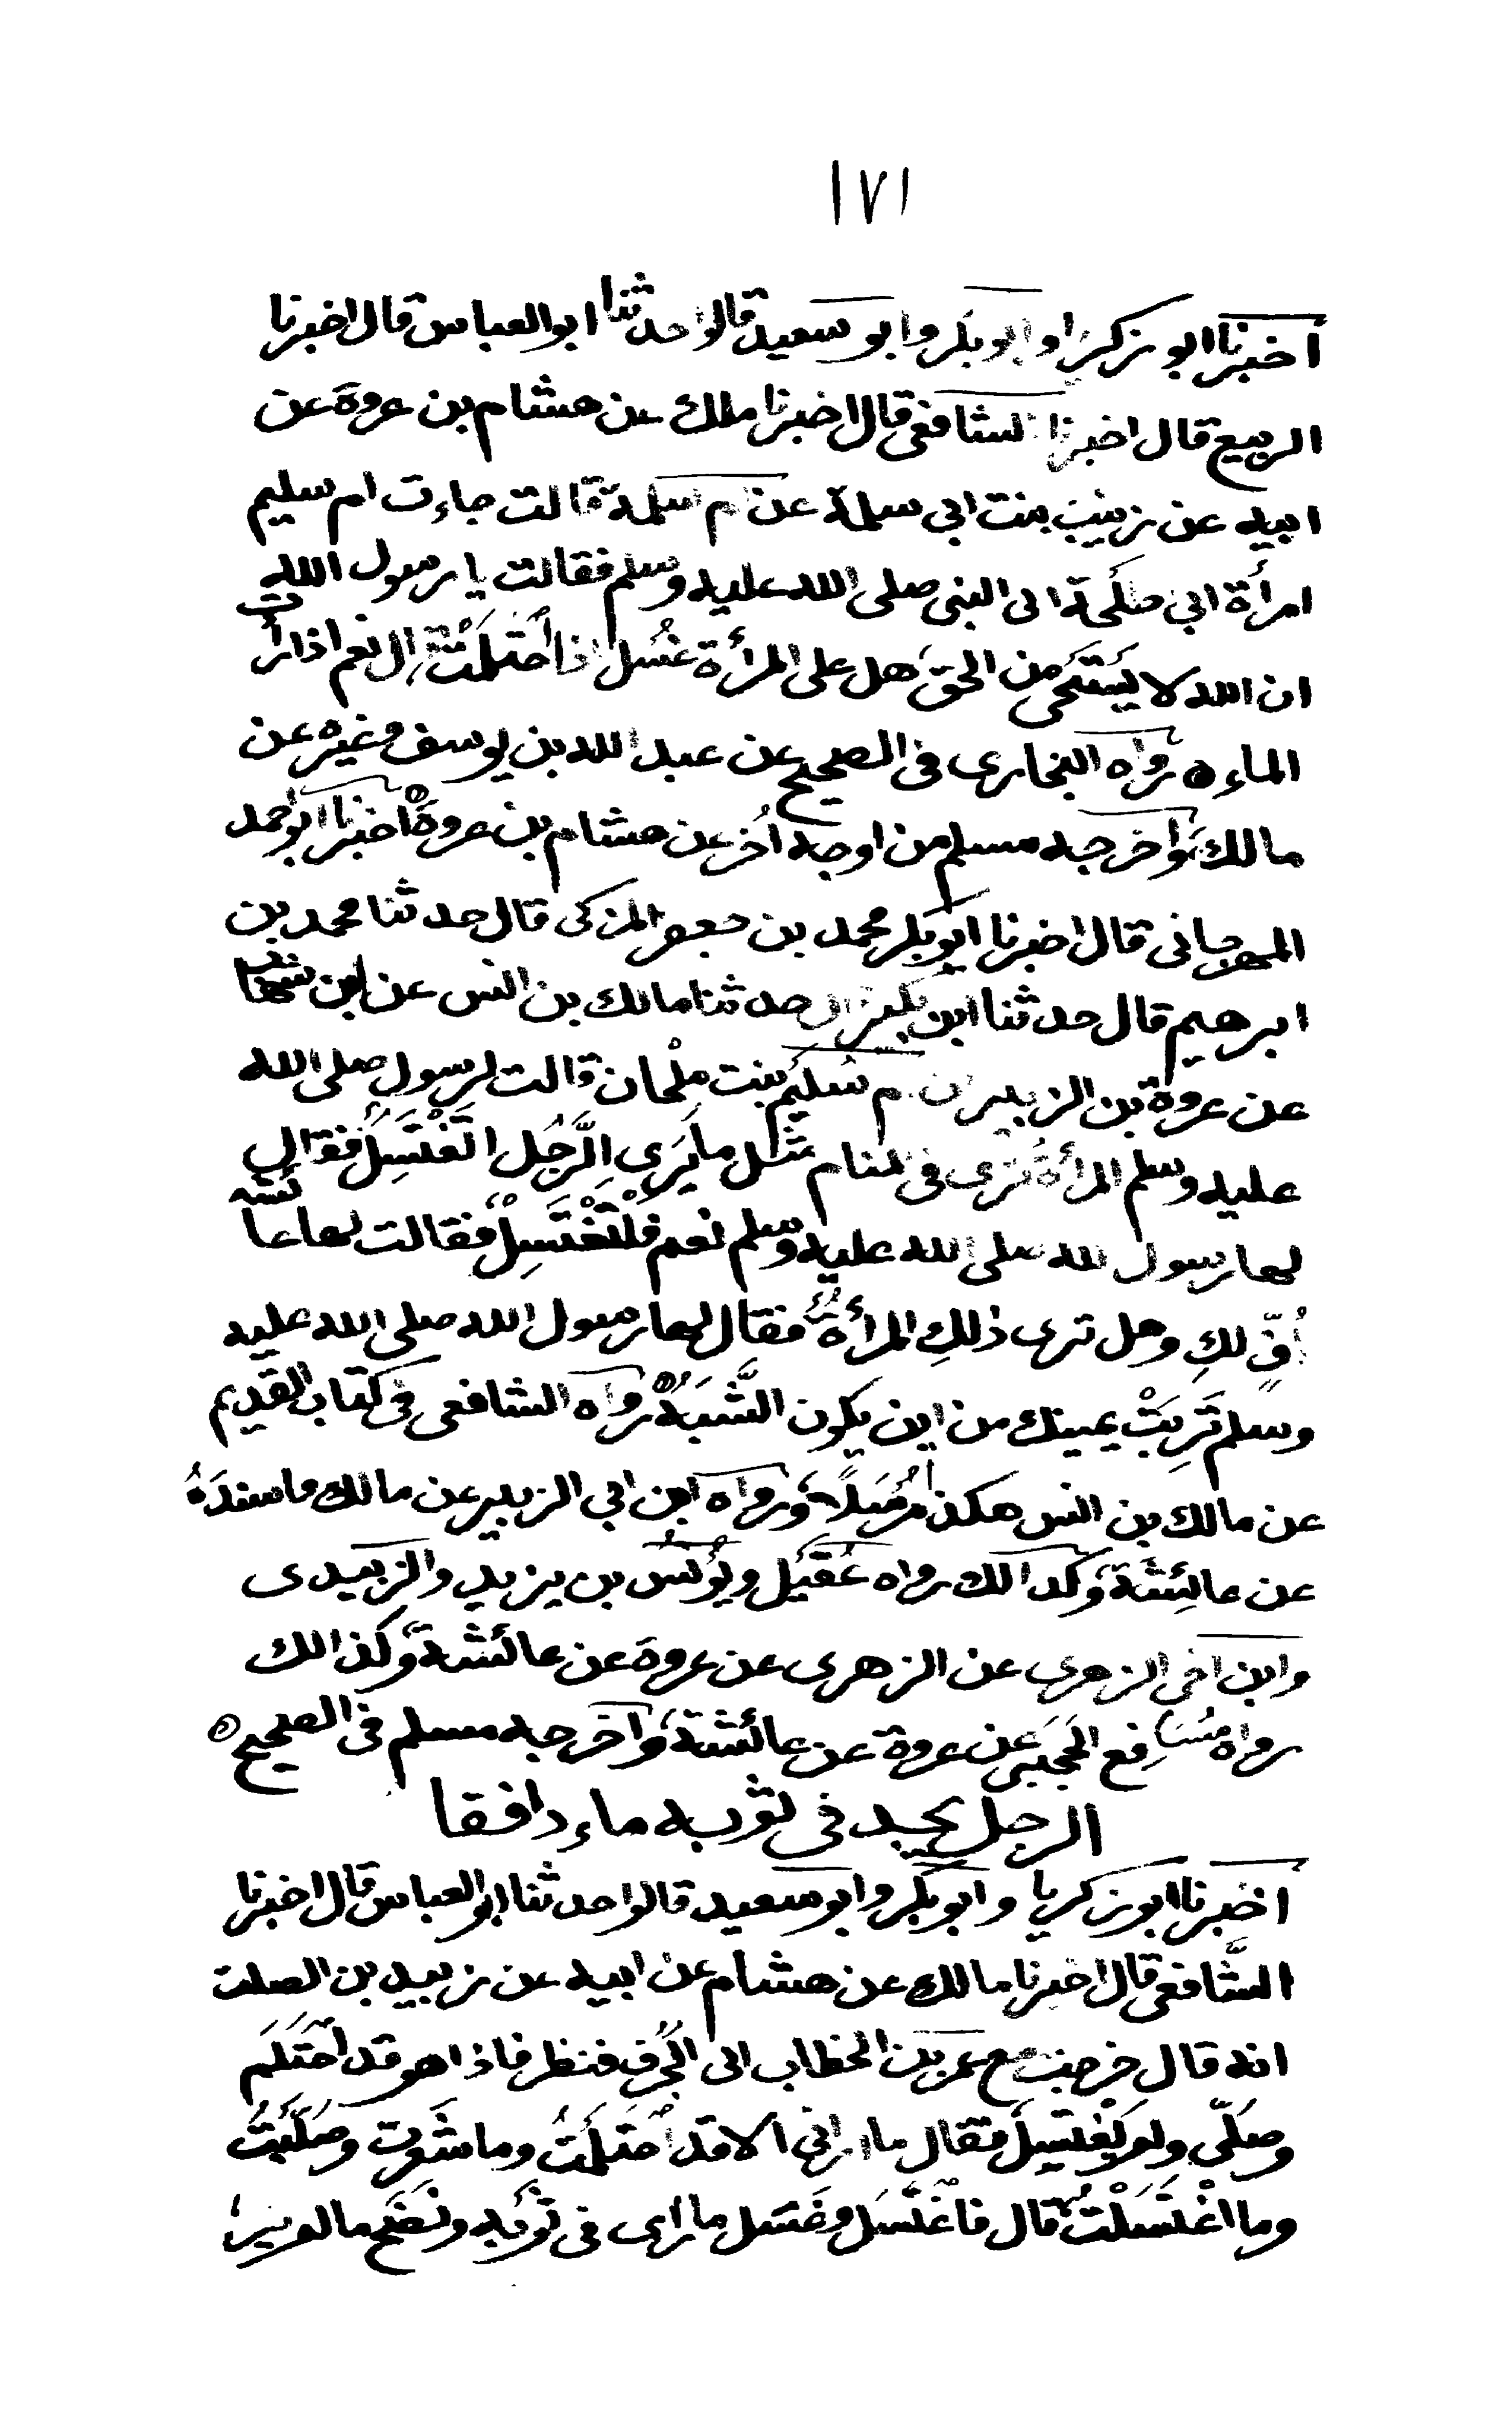 ١٧١
أخبرنا ابو زكريا وابو بكر وابو سعيد قالوا حدثنا ابو العباس قال اخبرنا
الربيع قال اخبرنا الشافعى قال اخبرنا ملك عن هشام بن عروة عن
ابيه عن زينب بنت ابي سلمة عن ام سلمة قالت جاءت ام سليم
امرأة ابي طلحة الى النبى صلى الله عليه وسلم فقالت يا رسول الله
ان الله لا يستحى من الحق هل على المرأة غسل اذا احتلمت قال نعم اذا رأت
الماء ه رواه البخارى فى الصحيح عن عبد الله بن يوسف وغيره عن
مالك واخرجه مسلم من اوجه اُخر عن هشام بن عروة ه اخبرنا ابو احمد
المهرجانى قال اخبرنا ابو بكر محمد بن جعفر المزكى قال حدثنا محمد بن
ابرهيم قال حدثنا ابن بكير قال حدثنا مالك بن انس عن ابن شهاب
عن عروة بن الزبير ان ام سُليم بنت مِلْحان قالت لرسول صلى الله
عليه وسلم المرأة تَرَى فى المنام مثل ما يَرَى الرَّجُل اتَغْتَسِلُ فقال
لها رسول الله صلى الله عليه وسلم نعم فَلْتَغْتَسِلْ فقالت لها عائشة
اُفٍّ لكِ وهل ترى ذلِكِ المرأة فقال لها رسول الله صلى الله عليه
وسلم تَرِبَتْ يمينك من اين يكون الشَّبَهُ ه رواه الشافعى فى كتاب القديم
عن مالك بن انس هكذا مُرْسَلاً ورواه ابن ابي الزبير عن مالك فاسندَهُ
عن عائِشَة وكذالك رواه عُقَيْل ويُونُسُ بن يزيد والزبيدى
وابن اخى الزهرى عن الزهرى عن عروة عن عائشة وكذالك
رواه مُسَافِع الحَجَبِى عن عروة عن عائشة واخرجه مسلم فى الصحيح ه
الرجل يجد فى ثوبه ماء دافقا
اخبرنا ابو زكريا وابو بكر وابو سعيد قالوا حدثنا ابو العباس قال اخبرنا
الشَّافعى قال اخبرنا مالك عن هشام عن ابيه عن زبيد بن الصلت
انه قال خرجت مع عمر بن الخطاب الى الجُرُف فنظر فاذا هو قد احْتَلَم
وصَلَّى ولم يَغْتَسِل فقال ما ارانى الا قد احْتَلَمْتُ وما شَعَرت وصَلَّيتُ
وما اغْتَسَلْتُ قال فاغْتَسَل وغَسَل ما راى فى ثَوْبِه ونَضَح مالم ير